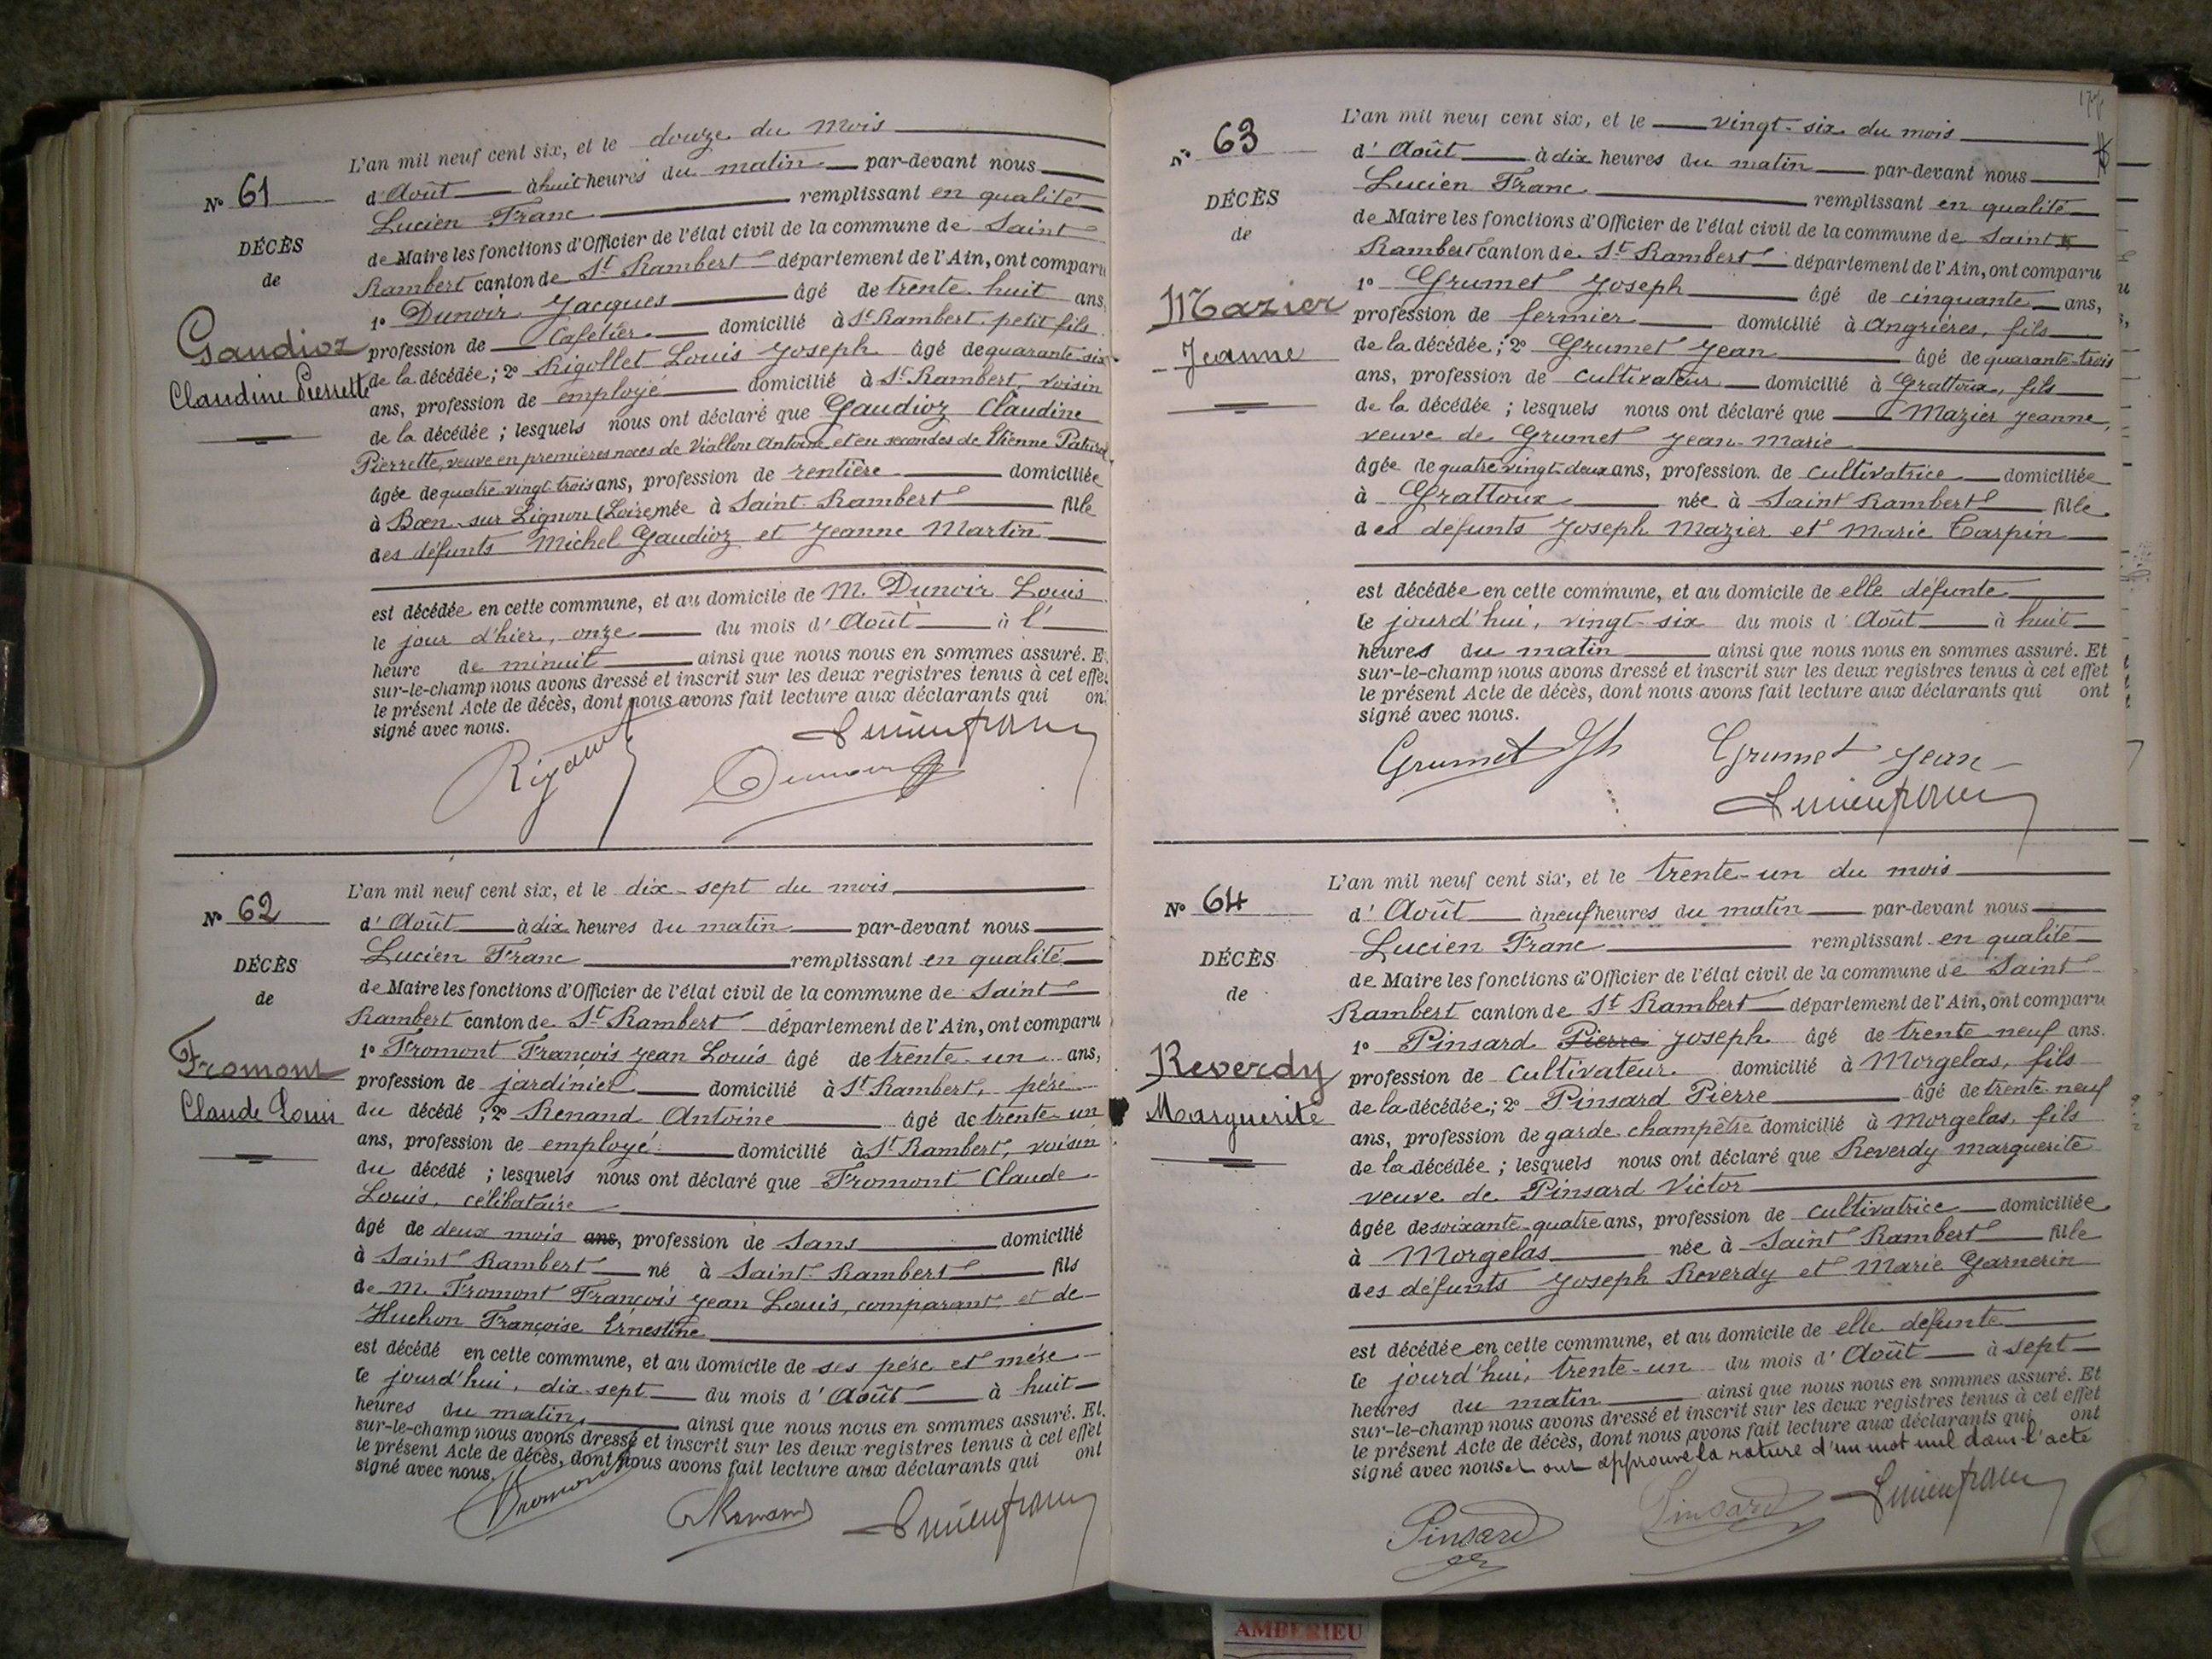 N° 61
DÉCÈS
de
Gaudioz
Claudine Pierrette
L'an mil neuf cent six, et le douze du mois
d'Août à huit heures du matin par-devant nous
Lucien Franc remplissant en qualité
de Maire les fonctions d'Officier de l'état civil de la commune de Saint
Rambert canton de St Rambert département de l'Ain, ont comparu
1° Dunoir Jacques âgé de trente huit ans,
profession de Cafetier domicilié à St Rambert, petit fils
de la décédée; 2° Rigollet Louis Joseph âgé de quarante six
ans, profession de employé domicilié à St Rambert, voisin
de la décédée; lesquels nous ont déclaré que Gaudioz Claudine
Pierrette, veuve en premières noces de Viallon Antoine et en secondes de Etienne
âgée de quatre vingt trois ans, profession de rentière domiciliée
à Boen sur Lignon (Loire) née à Saint Rambert fille
des défunts Michel Gaudioz et Jeanne Martin
est décédée en cette commune, et au domicile de M. Dunoir Louis
le jour d'hier, onze du mois d'Août à l'
heure de minuit ainsi que nous nous en sommes assuré. E
sur-le-champ nous avons dressé et inscrit sur les deux registres tenus à cet effe
le présent Acte de décès, dont nous avons fait lecture aux déclarants qui on
signé avec nous.
Lucien franc
Dunoir
N° 62
DÉCÈS
de
Fromont
Claude Louis
L'an mil neuf cent six, et le dix-sept du mois
d'Août à dix heures du matin par-devant nous
Lucien Franc remplissant en qualité
de Maire les fonctions d'Officier de l'état civil de la commune de Saint
Rambert canton de St Rambert département de l'Ain, ont comparu
1° Fromont François Jean Louis âgé de trente-un ans,
profession de jardinier domicilié à St Rambert, père
du décédé; 2° Renand Antoine âgé de trente-un
ans, profession de employé domicilié à St Rambert, voisin
du décédé; lesquels nous ont déclaré que Fromont Claude
Louis, célibataire
âgé de deux mois ans, profession de Sans domicilié
à Saint Rambert né à Saint Rambert fils
de M. Fromont François Jean Louis, comparant, et de
Huchon Françoise Ernestine
est décédé en cette commune, et au domicile de ses père et mère
le jourd'hui, dix-sept du mois d'Août à huit
heures du matin, ainsi que nous nous en sommes assuré. Et
sur-le-champ nous avons dressé et inscrit sur les deux registres tenus à cet effet
le présent Acte de décès, dont nous avons fait lecture aux déclarants qui ont
signé avec nous.
Fromont
Renand
Lucien franc
N° 63
DÉCÈS
de
Mazier
Jeanne
L'an mil neuf cent six, et le vingt-six du mois
d'Août à dix heures du matin par-devant nous
Lucien Franc remplissant en qualité
de Maire les fonctions d'Officier de l'état civil de la commune de Saint
Rambert canton de St Rambert département de l'Ain, ont comparu
1° Grumet Joseph âgé de cinquante ans,
profession de fermier domicilié à Angrières, fils
de la décédée; 2° Grumet Jean âgé de quarante-trois
ans, profession de cultivateur domicilié à Grattoux, fils
de la décédée; lesquels nous ont déclaré que Mazier Jeanne,
veuve de Grumet Jean-Marie
âgée de quatre vingt-deux ans, profession de cultivatrice domiciliée
à Grattoux née à Saint Rambert fille
des défunts Joseph Mazier et Marie Carpin
est décédée en cette commune, et au domicile de elle défunte
le jourd'hui, vingt-six du mois d'Août à huit
heures du matin ainsi que nous nous en sommes assuré. Et
sur-le-champ nous avons dressé et inscrit sur les deux registres tenus à cet effet
le présent Acte de décès, dont nous avons fait lecture aux déclarants qui ont
signé avec nous.
Grumet Jh Grumet Jean
Lucien franc
N° 64
DÉCÈS
de
Reverdy
Marguerite
L'an mil neuf cent six, et le trente-un du mois
d'Août à neuf heures du matin par-devant nous
Lucien Franc remplissant en qualité
de Maire les fonctions d'Officier de l'état civil de la commune de Saint
Rambert canton de St Rambert département de l'Ain, ont comparu
1° Pinsard Pierre Joseph âgé de trente neuf ans.
profession de Cultivateur domicilié à Morgelas, fils
de la décédée; 2° Pinsard Pierre âgé de trente-neuf
ans, profession de garde champêtre domicilié à Morgelas, fils
de la décédée; lesquels nous ont déclaré que Reverdy marguerite
veuve de Pinsard Victor
âgée de soixante-quatre ans, profession de cultivatrice domiciliée
à Morgelas née à Saint Rambert fille
des défunts Joseph Reverdy et Marie Garnerin
est décédée en cette commune, et au domicile de elle défunte
le jourd'hui, trente-un du mois d'Août à sept
heures du matin ainsi que nous nous en sommes assuré. Et
sur-le-champ nous avons dressé et inscrit sur les deux registres tenus à cet effet
le présent Acte de décès, dont nous avons fait lecture aux déclarants qui ont
signé avec nous et ont approuvé la rature d'un mot nul dans l'acte
Pinsard Pinsard Lucien franc
AMBERIEU